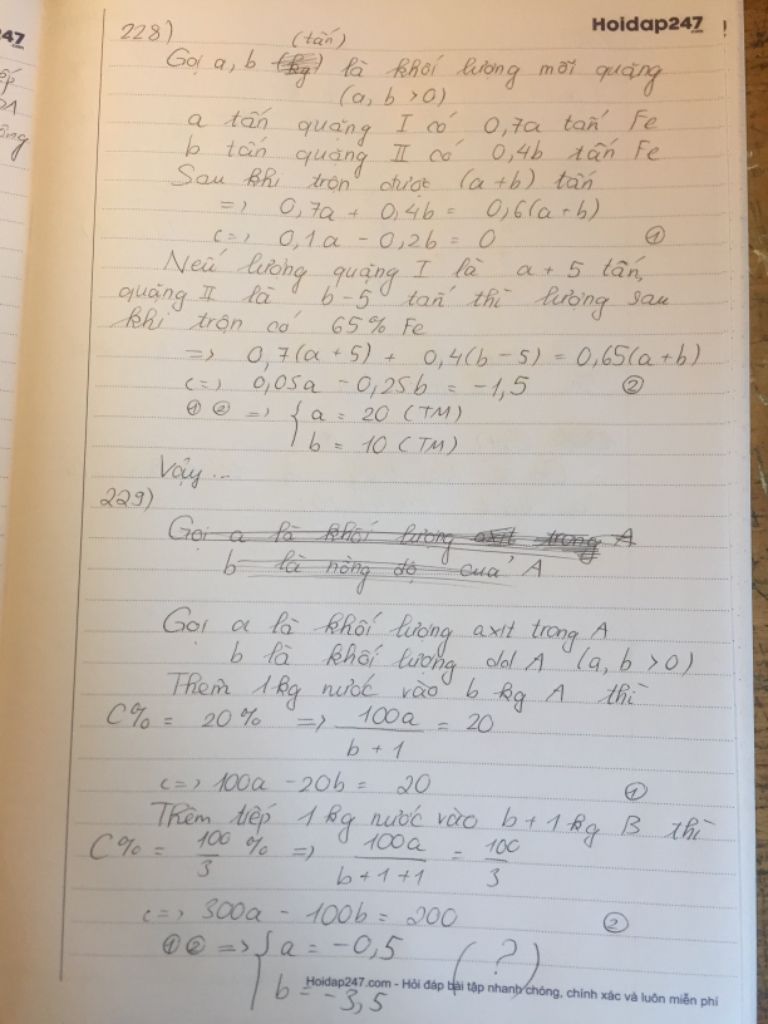 47
Hoidap247
.com
228)
(tấn)
Gọi a, b (kg) là khối lượng mỗi quặng
(a, b > 0)
a tấn quặng I có 0,7a tấn Fe
b tấn quặng II có 0,4b tấn Fe
Sau khi trộn được (a+b) tấn
=> 0,7a + 0,4b = 0,6(a+b)
<=> 0,1a - 0,2b = 0 ①
Nếu lượng quặng I là a + 5 tấn,
quặng II là b-5 tấn thì lượng sau
khi trộn có 65% Fe
=> 0,7(a+5) + 0,4(b-5) = 0,65(a+b)
<=> 0,05a - 0,25b = -1,5 ②
① ② => { a = 20 (TM)
b = 10 (TM)
Vậy ...
229)
Gọi a là khối lượng axit trong A
b là nồng độ của A
Gọi a là khối lượng axit trong A
b là khối lượng dd A (a, b > 0)
Thêm 1 kg nước vào b kg A thì
C% = 20% => 100a / b + 1 = 20
<=> 100a - 20b = 20 ①
Thêm tiếp 1 kg nước vào b+1 kg B thì
C% = 100/3 % => 100a / b+1+1 = 100/3
<=> 300a - 100b = 200 ②
① ② => { a = -0,5 (?)
b = -3,5
Hoidap247.com - Hỏi đáp bài tập nhanh chóng, chính xác và luôn miễn phí